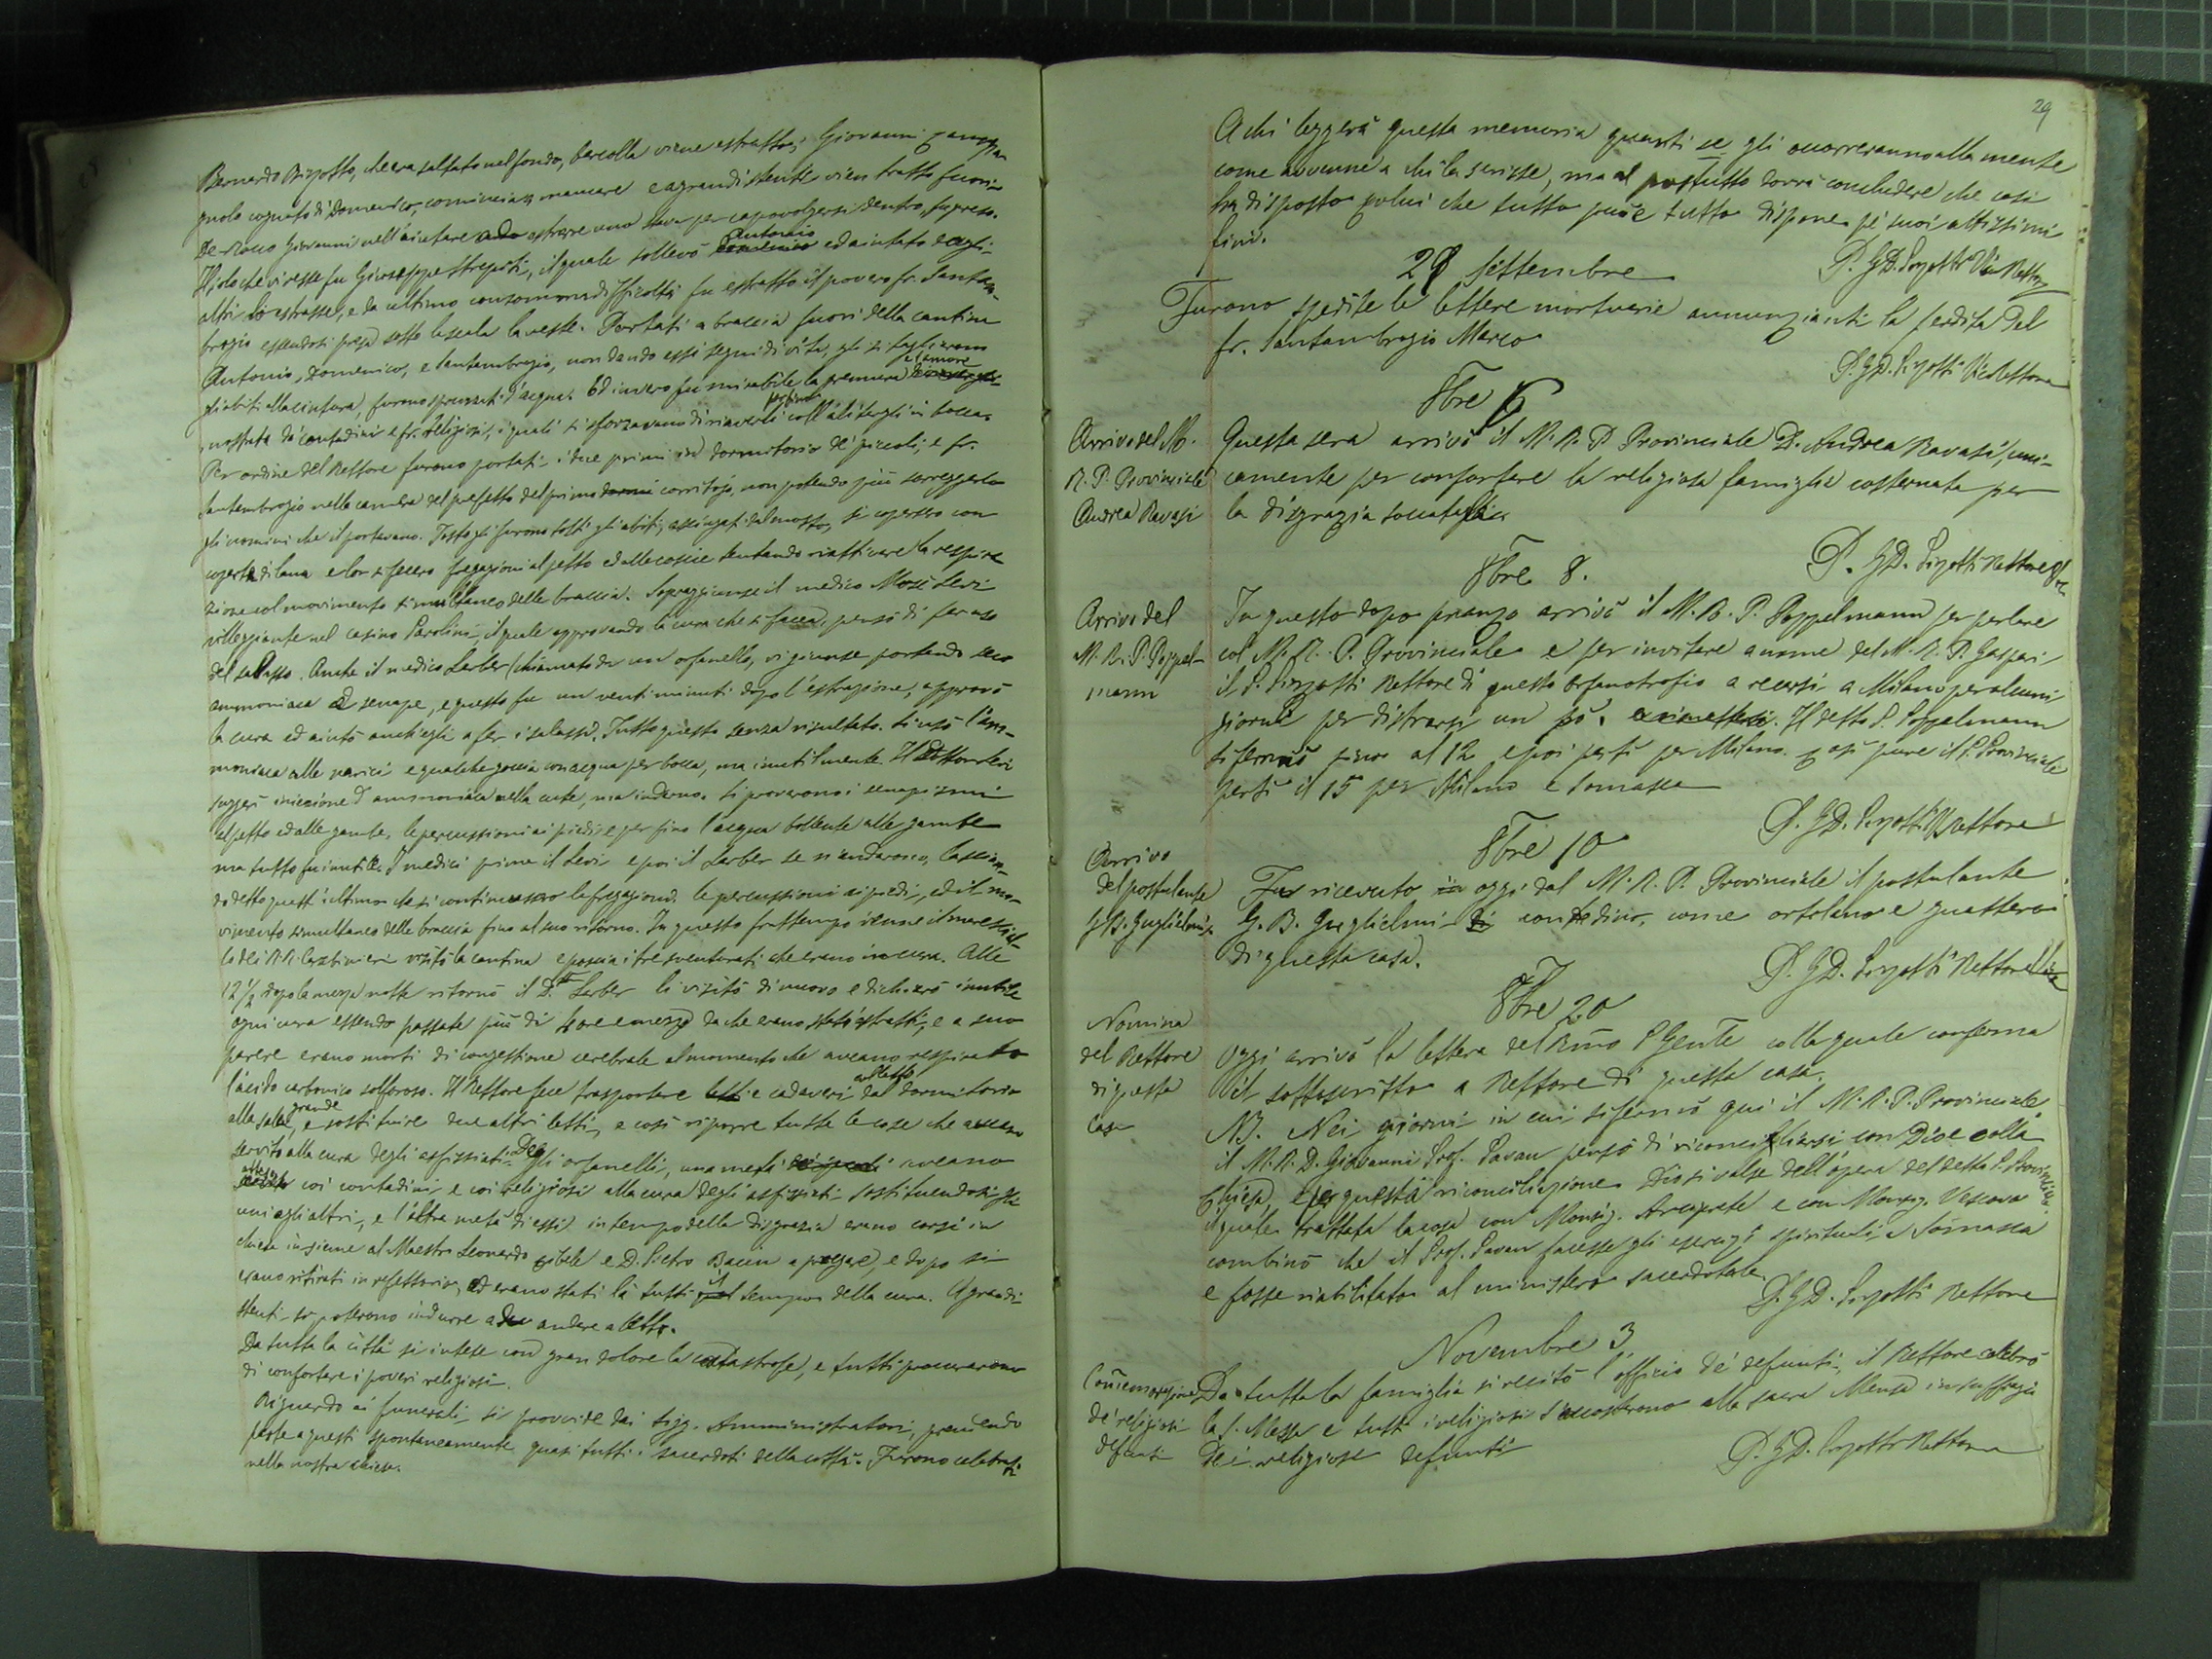 Bernardo Bizzotto, che era saltato nel fondo, barcolla viene estratto; Giovanni
gnolo cognato di Domenico, comincia a mancare e a grandi stente vien tratto fuori
De Rocco Giovanni nell'aiutare ado estrarre uno sta per capovolgersi dentro, fu preso.
Il solo che vi resse fu Giuseppe Strepiti, il quale sollevò Domenico Antonio ed aiutato dagli
altri lo estrasse, e da ultimo con somma difficoltà fu estratto il povero fr. Santam-
brogio essendosi presa sotto la scala la veste. Portati a braccia fuori della cantina
Antonio, Domenico, e Santambrogio, non dando essi segni di vita, gli si tagliarono
gli abiti alla cintura, furono spruzzati d'acqua. Ed invero fu mirabile la premura e l'amore
mostrata da' contadini e fr. religiosi, i quali si sforzavano di riaverli perfino coll'alitargli in bocca.
Per ordine del Rettore furono portati i due primi in dormitorio de' piccoli, e fr.
Santambrogio nella camera del prefetto del primo dormi corritojo, non potendo più sorreggerlo
gli uomini che il portavano. Tosto gli furono tolti gli abiti, asciugati dal mosto, si copersero con
coperte di lana e lor si fecero fregagioni al petto ed alle coscie tentando riattivare la respira
zione col movimento simultaneo delle braccia. Sopraggiunse il medico Mosè Levi
villeggiante nel casino Parolini, il quale approvando la cura che si facea, pensò di far uso
del salasso. Anche il medico Larber (chiamato da un orfanello, vi giunse portando seco
ammoniaca e senape, e questo fu un venti minuti dopo l'estrazione, approvò
la cura ed aiutò anch'egli a far i salassi. Tutto questo senza risultato. Si usò l'am-
moniaca alle narici e qualche goccia con acqua per bocca, ma inutilmente. Il Dottor Levi
suggerì iniezione d'ammoniaca nella cute, ma indarno. Si provarono i senapismi
al petto ed alle gambe, le percussioni ai piedi e per fino l'acqua bollente alle gambe
ma tutto fu inutile. I medici prima il Levi e poi il Larber se n'andarono, lascian-
do detto quest'ultimo che si continuassero le fregagioni, le percussioni ai piedi, ed il mo-
vimento simultaneo delle braccia fino al suo ritorno. In questo frattempo venne il marescial-
lo dei R.R. Carabinieri visitò la cantina e poscia i tre sventurati che erano in cura. Alle
12 ½ dopo la mezza notte ritornò il Dr. Larber li visitò di nuovo e dichiarò inutile
ogni cura essendo passate più di 4 ore e mezzo da che erano stati estratti, e a suo
parere erano morti di congestione cerebrale al momento che aveano respirato
l'acido carbonico solforoso. Il Rettore fece trasportare letti e cadaveri dal dormitorio
alla sala grande, e sostituire due altri letti, e così riporre tutte le cose che aveano
servito alla cura degli asfissiati. Degli orfanelli, una metà aveano
coi contadini e coi religiosi alla cura degli asfissiati sostituendosi gli
uni agli altri, e l'altra metà di essi in tempo della disgrazia erano corsi in
chiesa insieme al Maestro Leonardo e D. Pietro Bacin a pregare, e dopo si
erano ritirati in refettorio, ed erano stati là tutti il tempo della cura. A grandi
stenti si poterono indurre a andare a letto.
Da tutta la città si intese con gran dolore la catastrofe, e tutti procurarono
di confortare i poveri religiosi.
Riguardo ai funerali si provvide dai Sigg. Amministratori, prendendo
parte a questi spontaneamente quasi tutti i sacerdoti della città. Furono celebrati
nella nostra chiesa.
29
A chi leggerà questa memoria quanti se gli occorreranno alla mente
come avvenne a chi la scrisse, ma al postutto dovrà concludere che così
ha disposto colui che tutto può e tutto dispone pe' suoi altissimi
fini.
P. GD. Pizzotti Vice Rettore
29 Settembre
Furono spedite le lettere mortuarie annunzianti la perdita del
fr. Santambrogio Marco
P. GD. Pizzotti Vice Rettore
8bre 6
Arrivo del M.
R. P. Provinciale
Andrea Ravasi
Questa sera arrivò il M. R. P. Provinciale D. Andrea Ravasi, uni-
camente per confortare la religiosa famiglia costernata per
la disgrazia toccatale.
P. GD. Pizzotti Rettore
8bre 8.
Arrivo del
M. R. P. Poppel-
mann
In questo dopo pranzo arrivò il M. R. P. Poppelmann per parlare
col M. R. P. Provinciale e per invitare a nome del M. R. P. Gaspari
il P. Pizzotti Rettore di questo Orfanotrofio a recarsi a Milano per alcuni
giorni per distrarsi un po'. Il detto P. Poppelmann
si fermò sino al 12 e poi partì per Milano. Così pure il P. Provinciale
partì il 15 per Milano e Somasca
P. GD. Pizzotti Rettore
8bre 10
Arrivo
del postulante
G.B. Guglielmi
Fu ricevuto in oggi dal M. R. P. Provinciale il postulante
G. B. Guglielmi di contadino, come ortolano e guattero
di questa casa.
P. GD. Pizzotti Rettore
8bre 20
Nomina
del Rettore
di questa
Casa
Oggi arrivò la lettera del Rmo P Gente colla quale conferma
il sottoscritto a Rettore di questa casa.
NB. Nei giorni in cui si fermò qui il M. R. P. Provinciale
il M. R. D. Giovanni Prof. Pavan pensò di riconciliarsi con Dio e colla
Chiesa, e per questa riconciliazione si valse dell'opera del detto P. Provinciale,
il quale trattata la cosa con Monsig. Arciprete e con Monsig. Vescovo
combinò che il Prof. Pavan facesse gli esercizi spirituali a Somasca
e fosse riabilitato al ministero sacerdotale.
P. GD. Pizzotti Rettore
Novembre 3
Commemorazione
de' religiosi
defunti
Da tutta la famiglia si recitò l'officio de' defunti, il Rettore celebrò
la S. Messa e tutti i religiosi s'accostarono alla sacra Mensa in suffragio
dei religiosi defunti
P. GD. Pizzotti Rettore